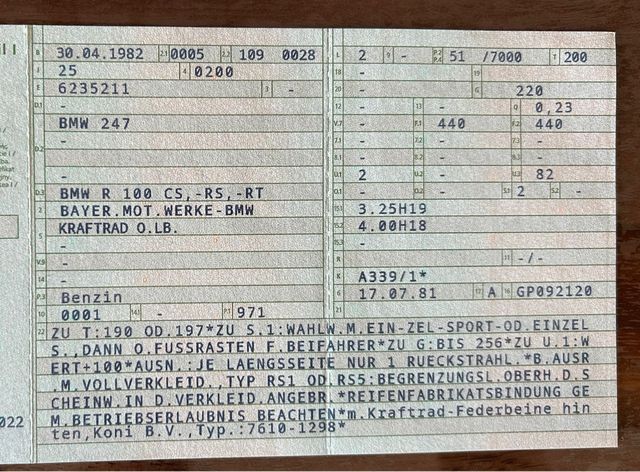 B 30.04.1982 2.1 0005 2.2 109 0028 L 2 9 - P.2 P.4 51 /7000 T 200
J 25 4 0200 18 - 19
E 6235211 3 - 20 - G 220
D.1 - 12 - 13 - Q 0,23
BMW 247 V.7 - F.1 440 F.2 440
D.2 - 7.1 - 7.2 - 7.3 -
- 8.1 - 8.2 - 8.3 -
- U.1 2 U.2 - U.3 82
D.3 BMW R 100 CS,-RS,-RT O.1 - O.2 - S.1 2 S.2 -
2 BAYER.MOT.WERKE-BMW 15.1 3.25H19
5 KRAFTRAD O.LB. 15.2 4.00H18
- 15.3 -
V.9 - R 11 -/-
14 - K A339/1*
P.3 Benzin 6 17.07.81 17 A 16 GP092120
10 0001 14.1 - P.1 971 21
22 ZU T:190 OD.197*ZU S.1:WAHLW.M.EIN-ZEL-SPORT-OD.EINZEL
S.,DANN O.FUSSRASTEN F.BEIFAHRER*ZU G:BIS 256*ZU U.1:W
ERT+100*AUSN.:JE LAENGSSEITE NUR 1 RUECKSTRAHL.*B.AUSR
.M.VOLLVERKLEID.,TYP RS1 OD.RS5:BEGRENZUNGSL.OBERH.D.S
CHEINW.IN D.VERKLEID.ANGEBR.*REIFENFABRIKATSBINDUNG GE
M.BETRIEBSERLAUBNIS BEACHTEN*m.Kraftrad-Federbeine hin
ten,Koni B.V.,Typ.:7610-1298*
022